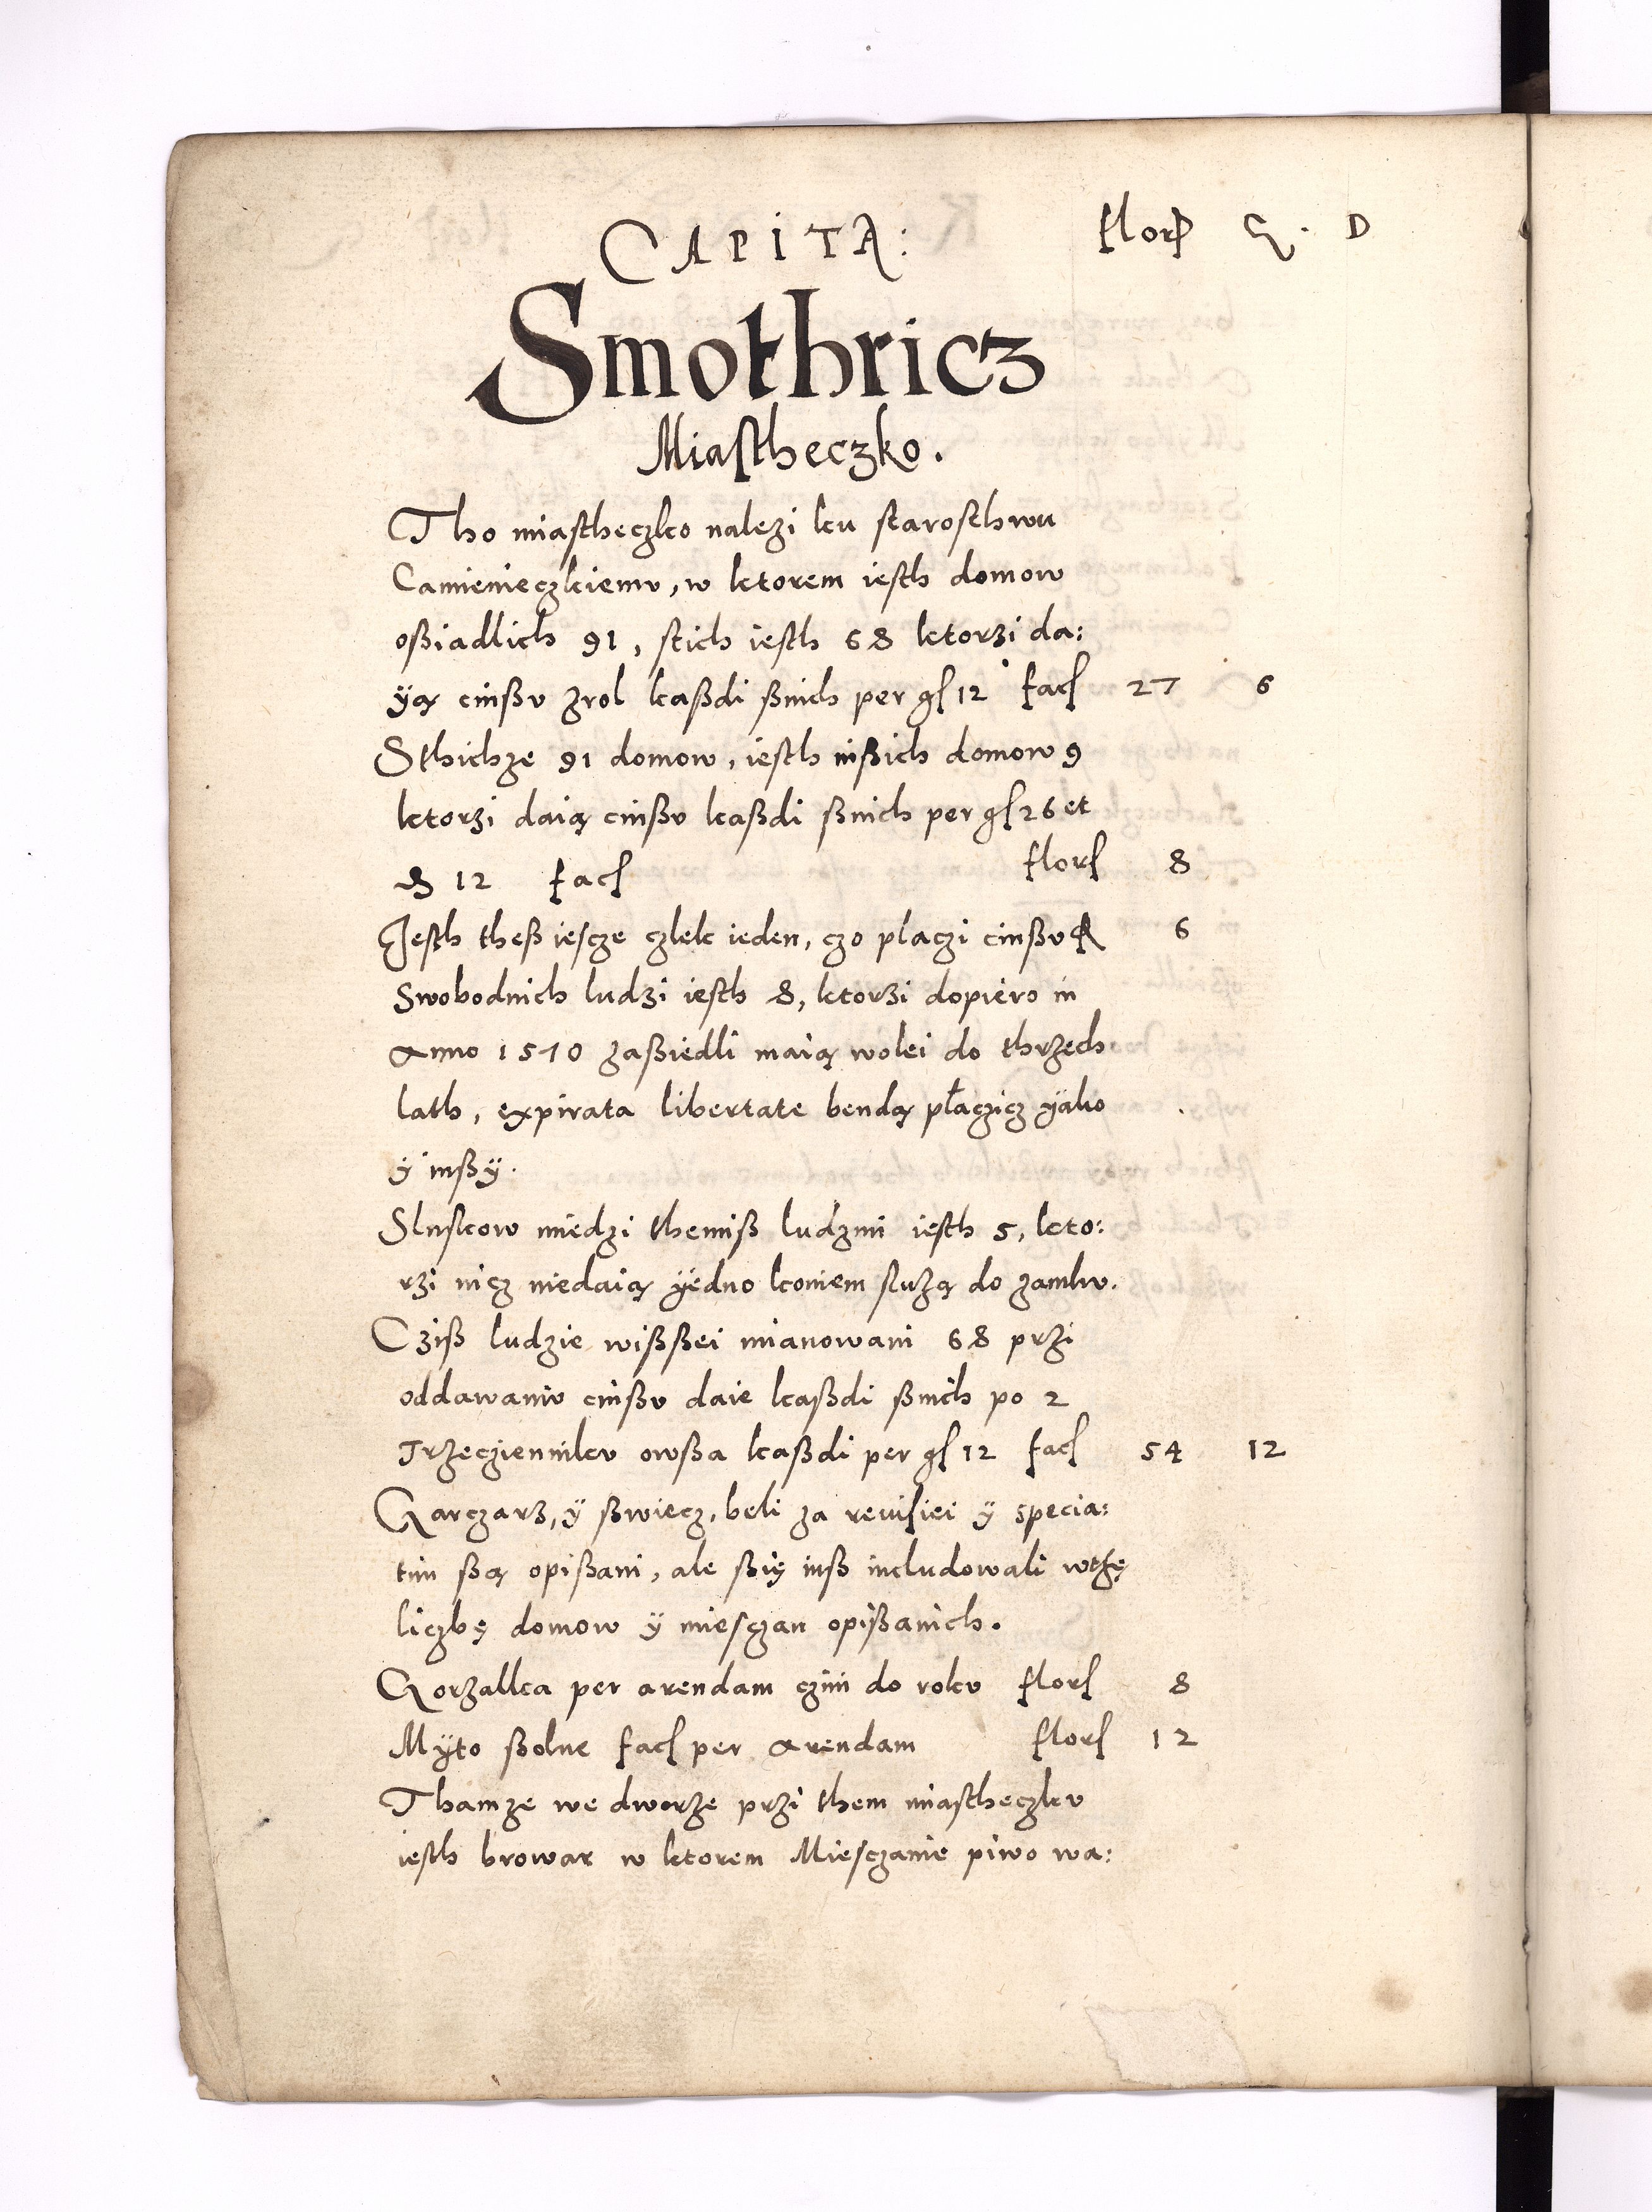 CAPITA: flor G. D
Smothricz
Miastheczko.
Tho miastheczko nalezi ku starosthwu
Camienieczkiemv, w ktorem iesth domow
oßiadlich 91, stich iesth 68 ktorzi da:
ÿą cinßv zrol kaßdi ßnich per gſ 12 facſ 27 6
Sthichze 91 domow, iesth nißich domow 9
ktorzi daią cinßv kaßdi ßnich per gſ 26 et
₰ 12 facſ florſ 8
Jesth theß iescze czlek ieden, czo placzi cinßv fl 6
Swobodnich ludzi iesth 8, ktorzi dopiero in
Anno 1570 zaßiedli maią wolei do thrzech
lath, expirata libertate bendą płaczicz ÿako
ÿ inßÿ.
Sluskow miedzi themiß ludzmi iesth 5, kto:
rzi nicz niedaią ÿedno koniem służą do zamkv.
Cziß ludzie wißßei mianowani 68 przi
oddawaniv cinßv daie kaßdi ßnich po 2
Trzecziennikv owßa kaßdi per gſ 12 facſ 54 12
Karczarz, ÿ ßwiecz, beli za reuisiei ÿ specia:
tim ßą opißani, ale ßię inß includowali wtħę
liczbę domow ÿ miesczan opißanich.
Gorzalka per arendam czini do rokv florſ 8
Mÿto ßolne facſ per Arendam florſ 12
Thamze we dworze przi them miastheczkv
iesth browar w ktorem Miesczanie piwo wa: